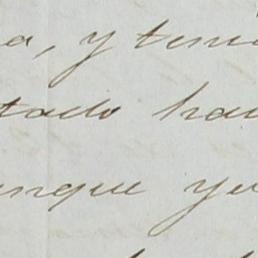 a, y teni
tado hac
unque yo